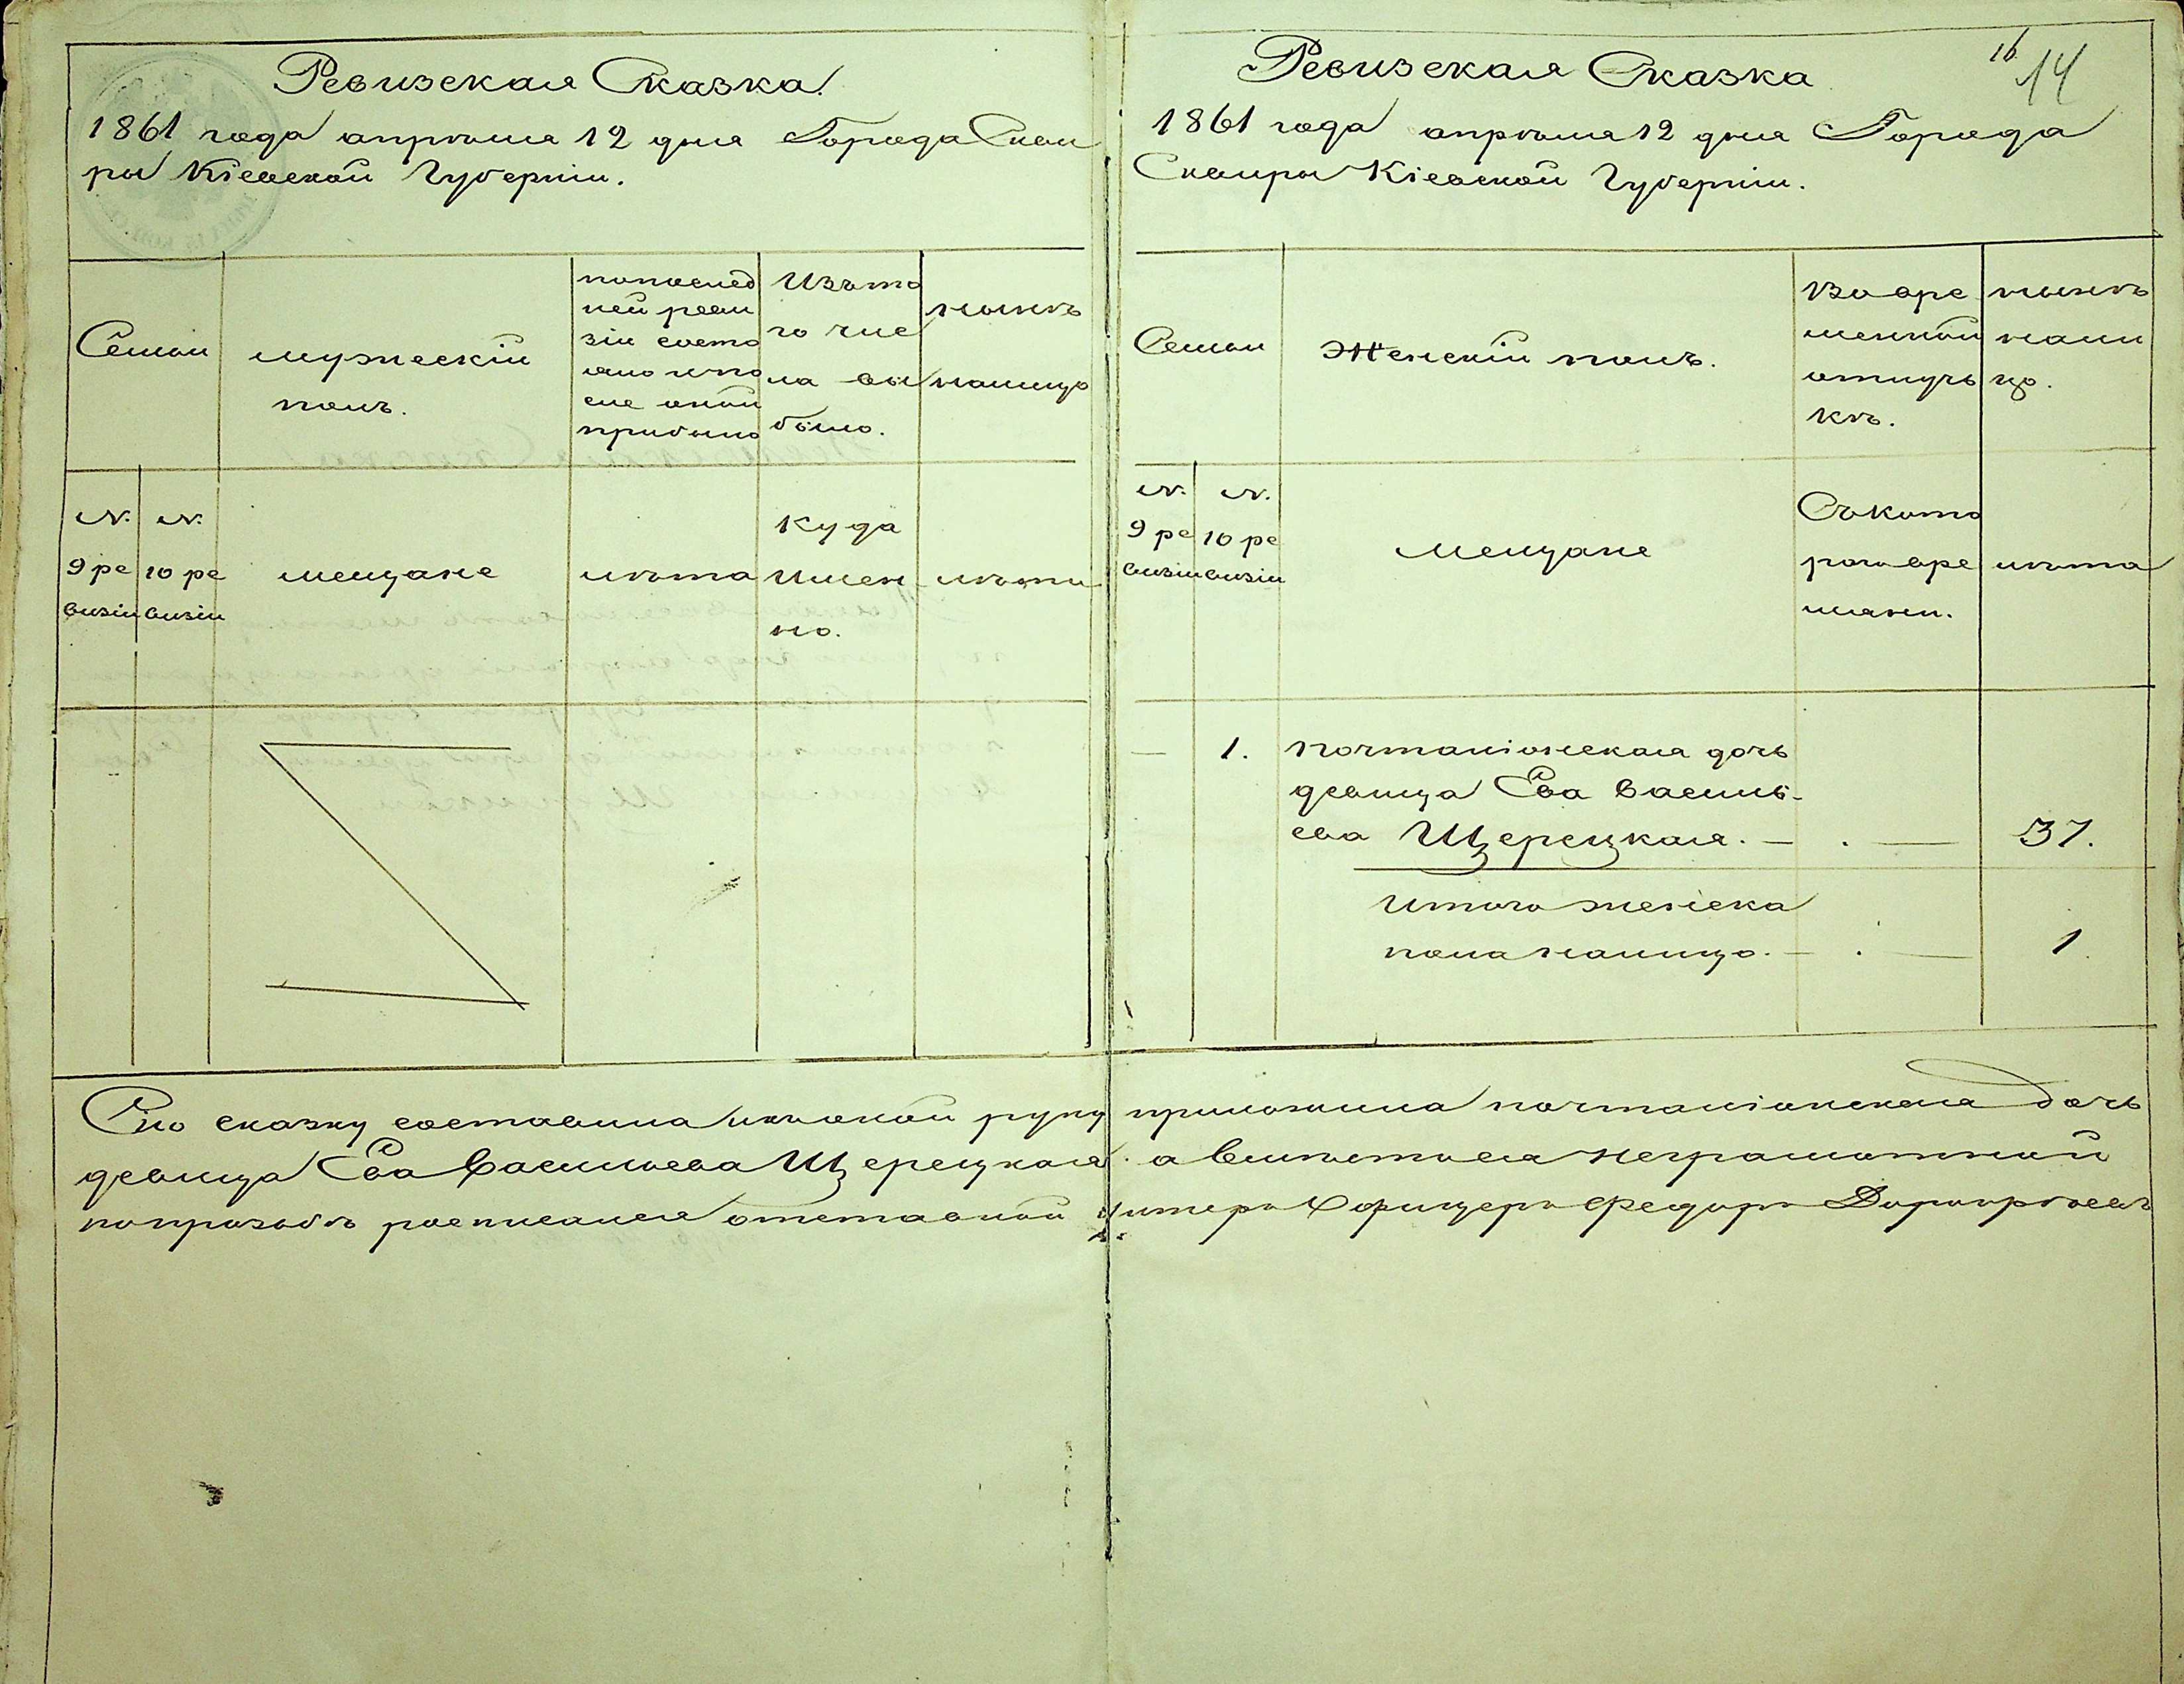 Ревизская Сказка
1861 года апрѣля 12 дня Города Скви
ры Кіевской Губерніи.
Семьи
мужескій
полъ.
попослед
ней реви
зіи состо
яло и по
сле оной
прибыло
Изъто
го чис
ла вы
было.
нынѣ
налицо
№.
9 ре
визіи
№.
10 ре
визіи
мещане
лѣта
Куда
имен
но.
лѣта
16
14
Ревизская Сказка
1861 года апрѣля 12 дня Города
Сквиры Кіевской Губерніи.
Семьи
Женскій полъ.
Во вре
менной
отлуч
кѣ.
нынѣ
нали
цо.
№.
9 ре
визіи
№.
10 ре
визіи
мещане
Съкото
раго вре
мяни.
лѣта
— 1. почталіонская дочь
девица Ева Василь-
ева Щерецкая. — . — 37.
Итого женска
пола налицо. — . — 1.
Сію сказку составила икъ оной руку приложила почталіонская дочь
девица Ева Васильева Щерецкая. а вмѣсто ея неграмотной
попрозьбѣ росписался отставной унтеръ Офицеръ Федоръ